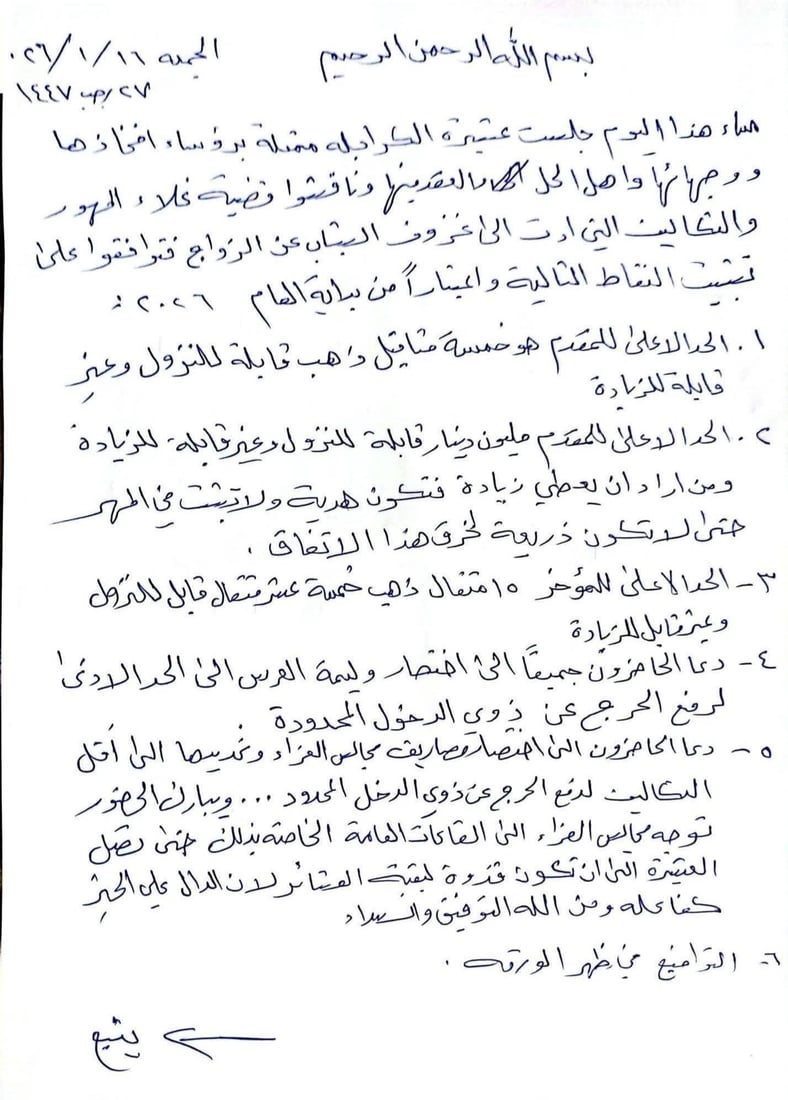 بسم الله الرحمن الرحيم
الجمعه ٢٠٢٦/١/١٦
٢٧ رجب ١٤٤٧
مساء هذا اليوم جلست عشيرة الكرابله ممثلة برؤساء افخاذها
ووجهائها واهل الحل والعقد فيها وناقشوا قضية غلاء المهور
والتكاليف التي ادت الى عزوف الشباب عن الزواج فتوافقوا على
تثبيت النقاط التالية واعتباراً من بداية العام ٢٠٢٦ :
١. الحد الاعلى للمقدم هو خمسة مثاقيل ذهب قابلة للنزول وغير
قابلة للزيادة
٢. الحد الاعلى للمقدم مليون دينار قابلة للنزول وغير قابلة للزيادة
ومن اراد ان يعطي زيادة فتكون هدية ولا تثبت في المهر
حتى لا تكون ذريعة لخرق هذا الاتفاق .
٣- الحد الاعلى للمؤخر ١٥ مثقال ذهب خمسة عشر مثقال قابل للنزول
وغير قابل للزيادة
٤- دعا الحاضرون جميعاً الى اختصار وليمة العرس الى الحد الادنى
لرفع الحرج عن ذوي الدخول المحدودة .
٥- دعا الحاضرون الى اختصار مصاريف مجالس العزاء وتحديدها الى أقل
التكاليف لدفع الحرج عن ذوي الدخل المحدود ... ويبارك الحضور
توجه مجالس العزاء الى القاعات العامة الخاصة بذلك حتى تصل
العشيرة الى ان تكون قدوة لبقية العشائر لان الدال على الخير
كفاعله ومن الله التوفيق والسداد
٦- التواقيع في ظهر الورقه .
يتبع